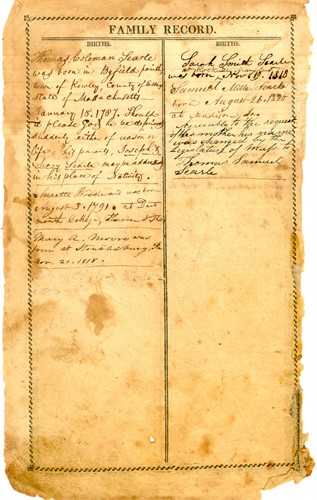 FAMILY RECORD.
BIRTHS.
Thomas Coleman Searle
was born in Byfield parish
town of Rowley County of Essex
State of Massachusetts
January 15. 1787. Should
it please God he be deprived
suddenly either of reason or
life, his parents, Joseph &
Mary Searle may be addressed
in his place of Nativity.
Annette Woodward was born
August 3. 1791. at Dart
mouth College, Hanover
Mary A. Moore was
born at
Nov. 21. 1818.
BIRTHS.
Sarah Smith Searle
was born Nov 19. 1818
Samuel Miller Searle
born August 26. 1820
at Madison
Agreeable to the request
of his mother his name
was changed by
Legislature of
Thomas Samuel
Searle